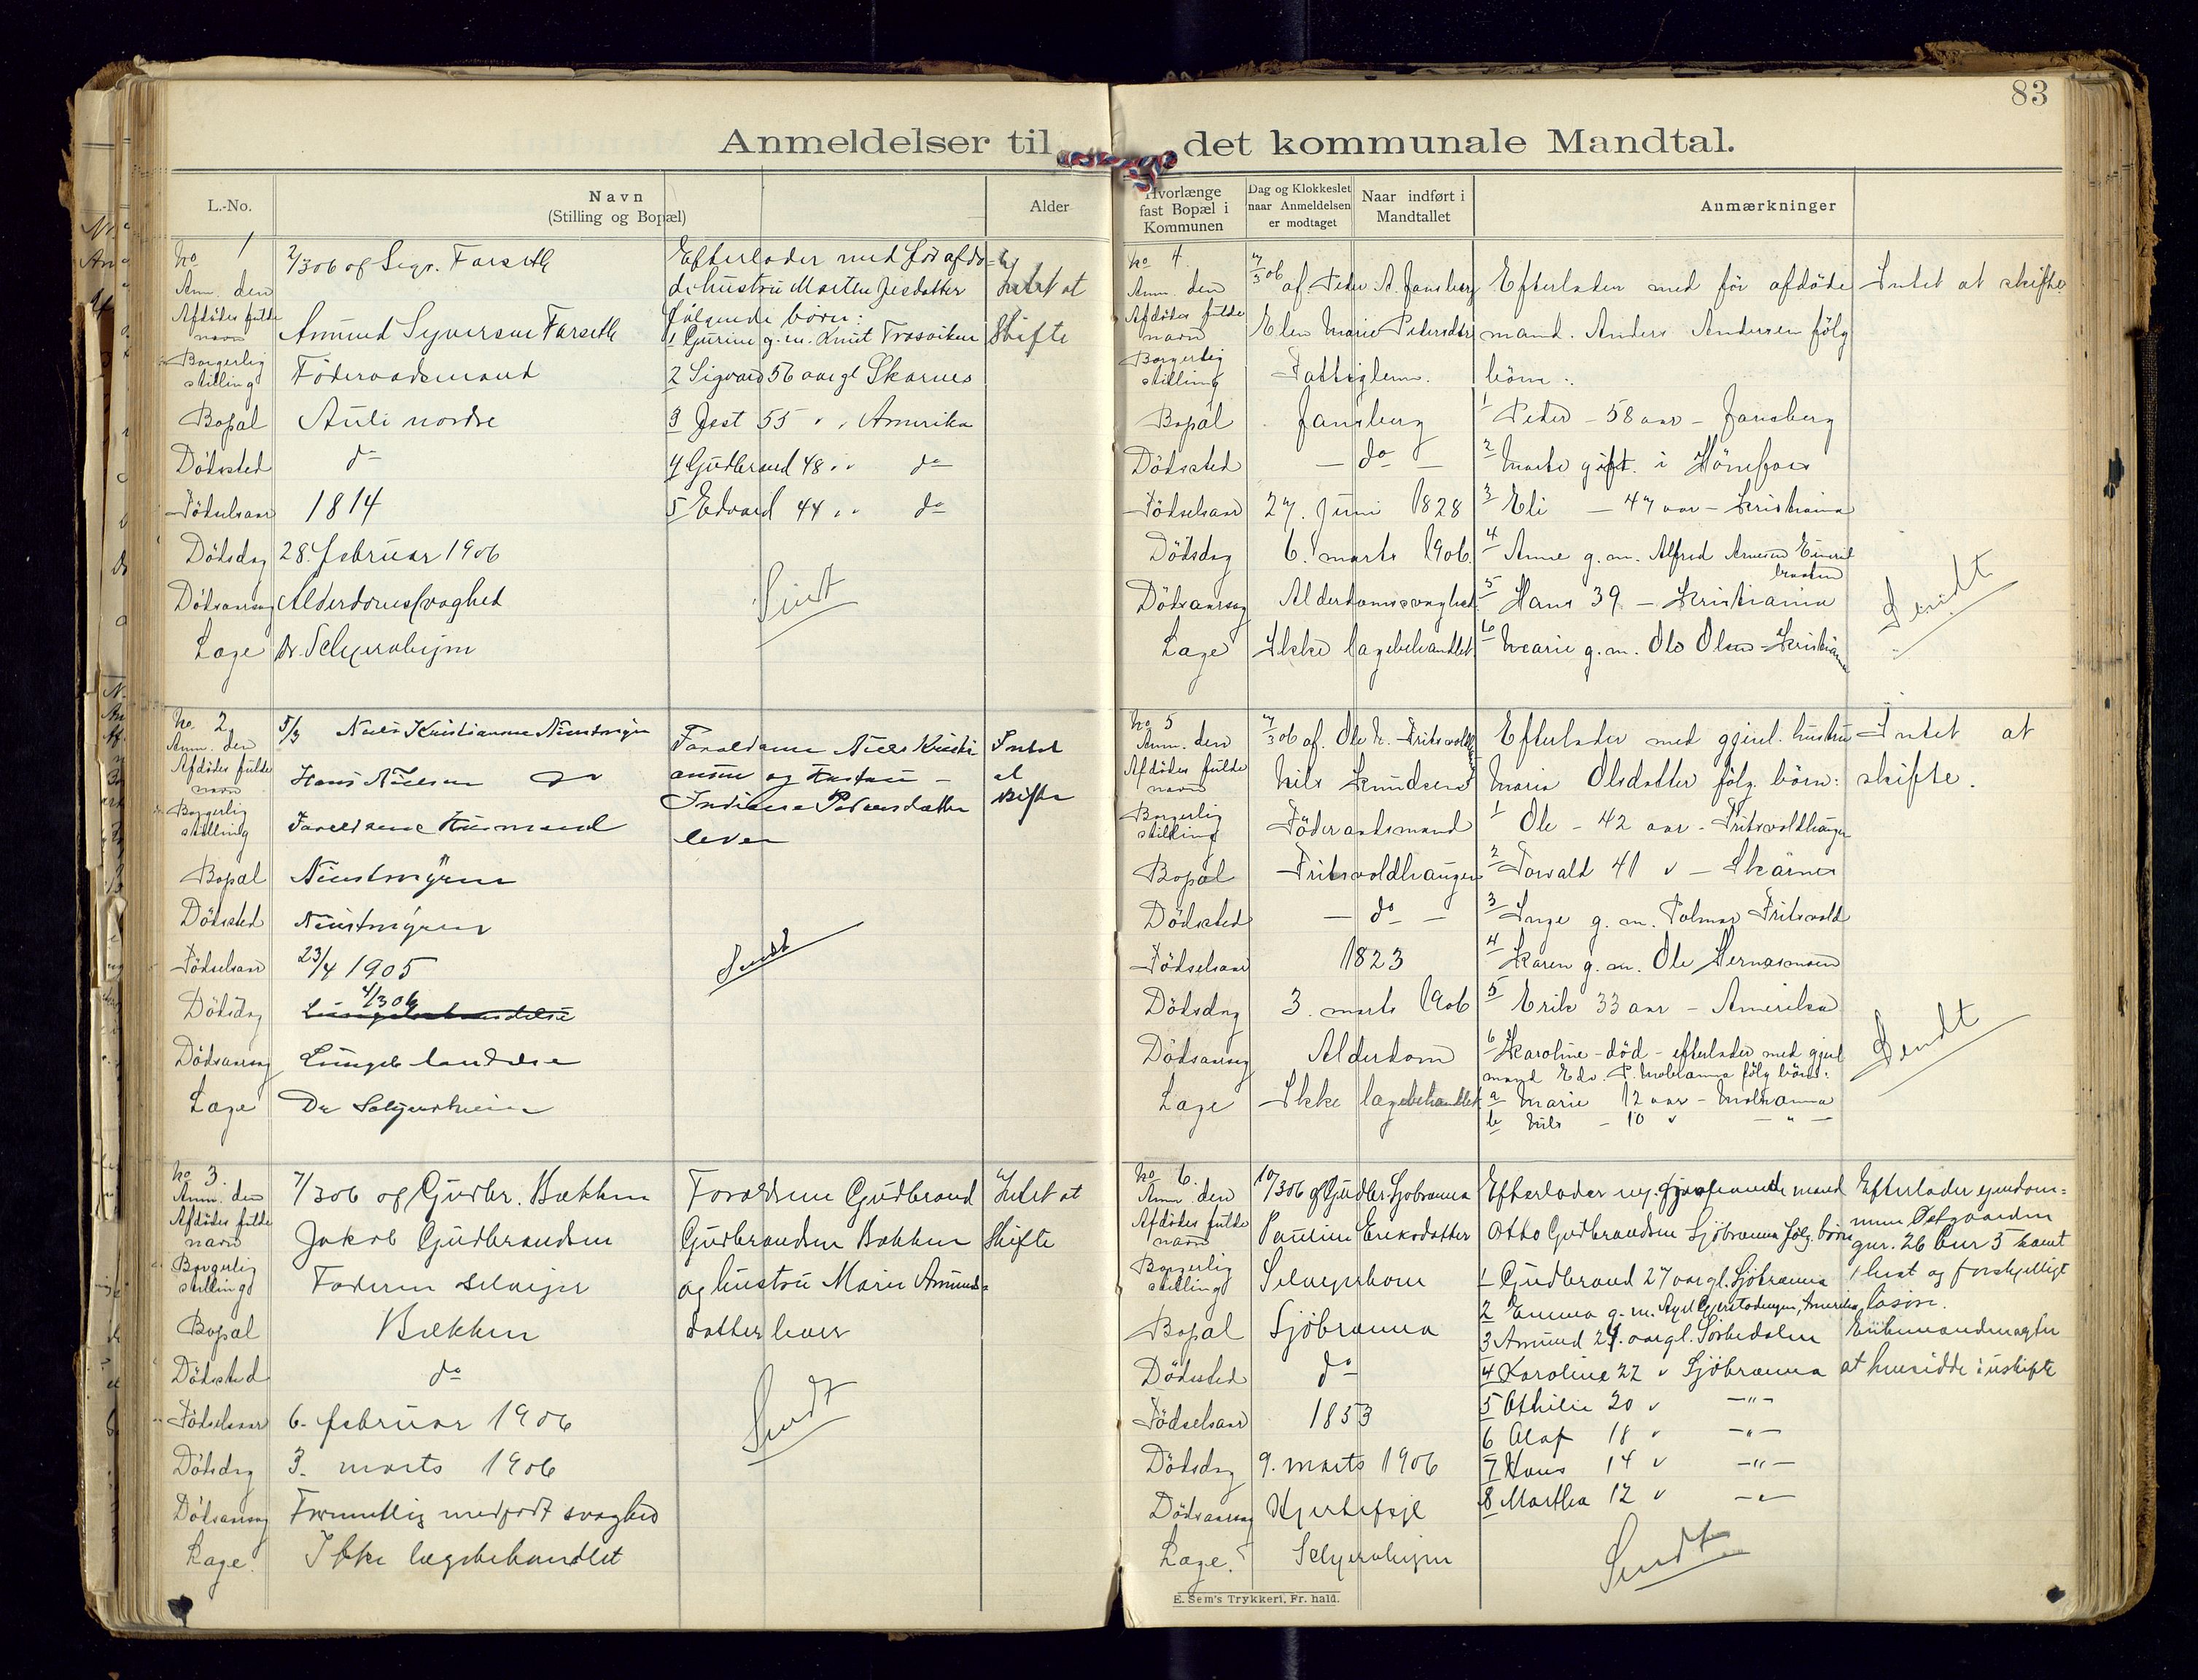 83
Anmeldelser til det kommunale Mandtal.
L.-No.
Navn
(Stilling og Bopæl)
Alder
Hvorlænge
fast Bopæl i
Kommunen
Dag og Klokkeslet
naar Anmeldelsen
er modtaget
Naar indført i
Mandtallet
Anmærkninger
No 1
Anm. den 2/3 06 af Sigv. Farseth
Afdödes fulde
navn Amund Syversen Farseth
Borgerlig
stilling Föderaadsmand
Bopæl Auli nordre
Dödssted do
Födselsaar 1814
Dödsdag 28. februar 1906
Dödsaarsag Alderdomssvaghed
Læge Dr. Schejersheim
Efterlader med før afdö-
de hustru Marthe Jesdatter
følgende børn:
1 Gurine g.m. Knut Trosviken
2 Sigvard 56 aargl Skarnes
3 Jest 55 " " Amerika
4 Gudbrand 48 " " do
5 Edvard 44 " " do
Sendt
Intet at
Skifte
No 2
Anm. den 5/3 Niels Kristiansen
Afdödes fulde
navn Hans Nielsen
Borgerlig
stilling Forældrene Husmand
Bopæl
Dödssted
Födselsaar 23/4 1905
Dödsdag 4/3 06
Dödsaarsag Lungebetændelse
Læge Dr
Forældrene Niels Kristi
ansen og Hustru –
Pedersdatter
lever
Sendt
Intet
at
skifte
No 3.
Anm. den 7/3 06 af Gudbr. Bækken
Afdödes fulde
navn Jakob Gudbrandsen
Borgerlig
stilling Faderen selveier
Bopæl Bækken
Dödssted do
Födselsaar 6. februar 1906
Dödsdag 3. marts 1906
Dödsaarsag Formentlig medfødt svaghed
Læge. Ikke lægebehandlet
Forældrene Gudbrand
Gudbrandsen Bækken
og hustru Marie Amunds-
datter lever
Sendt
Intet at
Skifte
No 4
Anm. den 7/3 06 af. Peder A. Jansberg
Afdödes fulde
navn Elen Marie Pedersdtr
Borgerlig
stilling Fattiglem.
Bopæl Jansberg
Dödssted – do –
Födselsaar 27. Juni 1828
Dödsdag 6. marts 1906
Dödsaarsag Alderdomssvaghed
Læge Ikke lægebehandlet
Efterlader med før afdöde
mand. Anders Andersen fölg
börn:
1 Peder – 58 aar – Jansberg
2 Marte gift. i Hönefos
3 Eli – 47 aar – Kristiania
4 Anne g. m. Alfred Arnesen
5 Hans 39 – Kristiania
6 Marie g. m. Ole Olsen – Kristiania
Intet at skifte
Sendt
No 5
Anm. den 7/3 06 af. Ole N. Fritsvold
Afdödes fulde
navn Nils Knudsen
Borgerlig
stilling Föderaadsmand
Bopæl Fritsvoldhaugen
Dödssted – do –
Födselsaar 1823
Dödsdag 3. marts 1906
Dödsaarsag Alderdom
Læge Ikke lægebehandlet
Efterlader med gjenl. hustru
Maria Olsdatter fölg. börn:
1 Ole – 42 aar – Fritsvoldhaugen
2 Torvald 41 " – Skarnes
3 Inge g. m. Fritsvold
4 Karen g. m. Ole
5 Erik 33 aar – Amerika
6 Karoline – död – efterlader med gjenl
mand Edv. P. fölg börn:
a Marie 12 aar –
b Nils – 10 " – " –
Intet at
skifte.
Sendt
No 6.
Anm. den 10/3 06 af Gudbr. Sjöbranna
Afdödes fulde
navn Pauline Eriksdatter
Borgerlig
stilling Selveierkone
Bopæl Sjöbranna
Dödssted do
Födselsaar 1853
Dödsdag 9. marts 1906
Dödsaarsag Hjertefeil
Læge. Schejersheim
Efterlader mand
Otto Gudbrandsen Sjöbranna fölg. börn
1 Gudbrand 27 aargl. Sjöbranna
2 Emma g. m. Amerika
3 Amund 24 aargl. Sörkedalen
4 Karoline 22 " Sjöbranna
5 Othilie 20 " – " –
6 Olaf 18 " – " –
7 Hans 14 " – " –
8 Martha 12 " – " –
Sendt
Efterlader eiendom-
men Östgaarden
gnr. 26 bnr 5 samt
1 hest og forskjelligt
løsøre.
Enkemanden agter
at hensidde i uskifte
E. Sem's Trykkeri, Fr. hald.